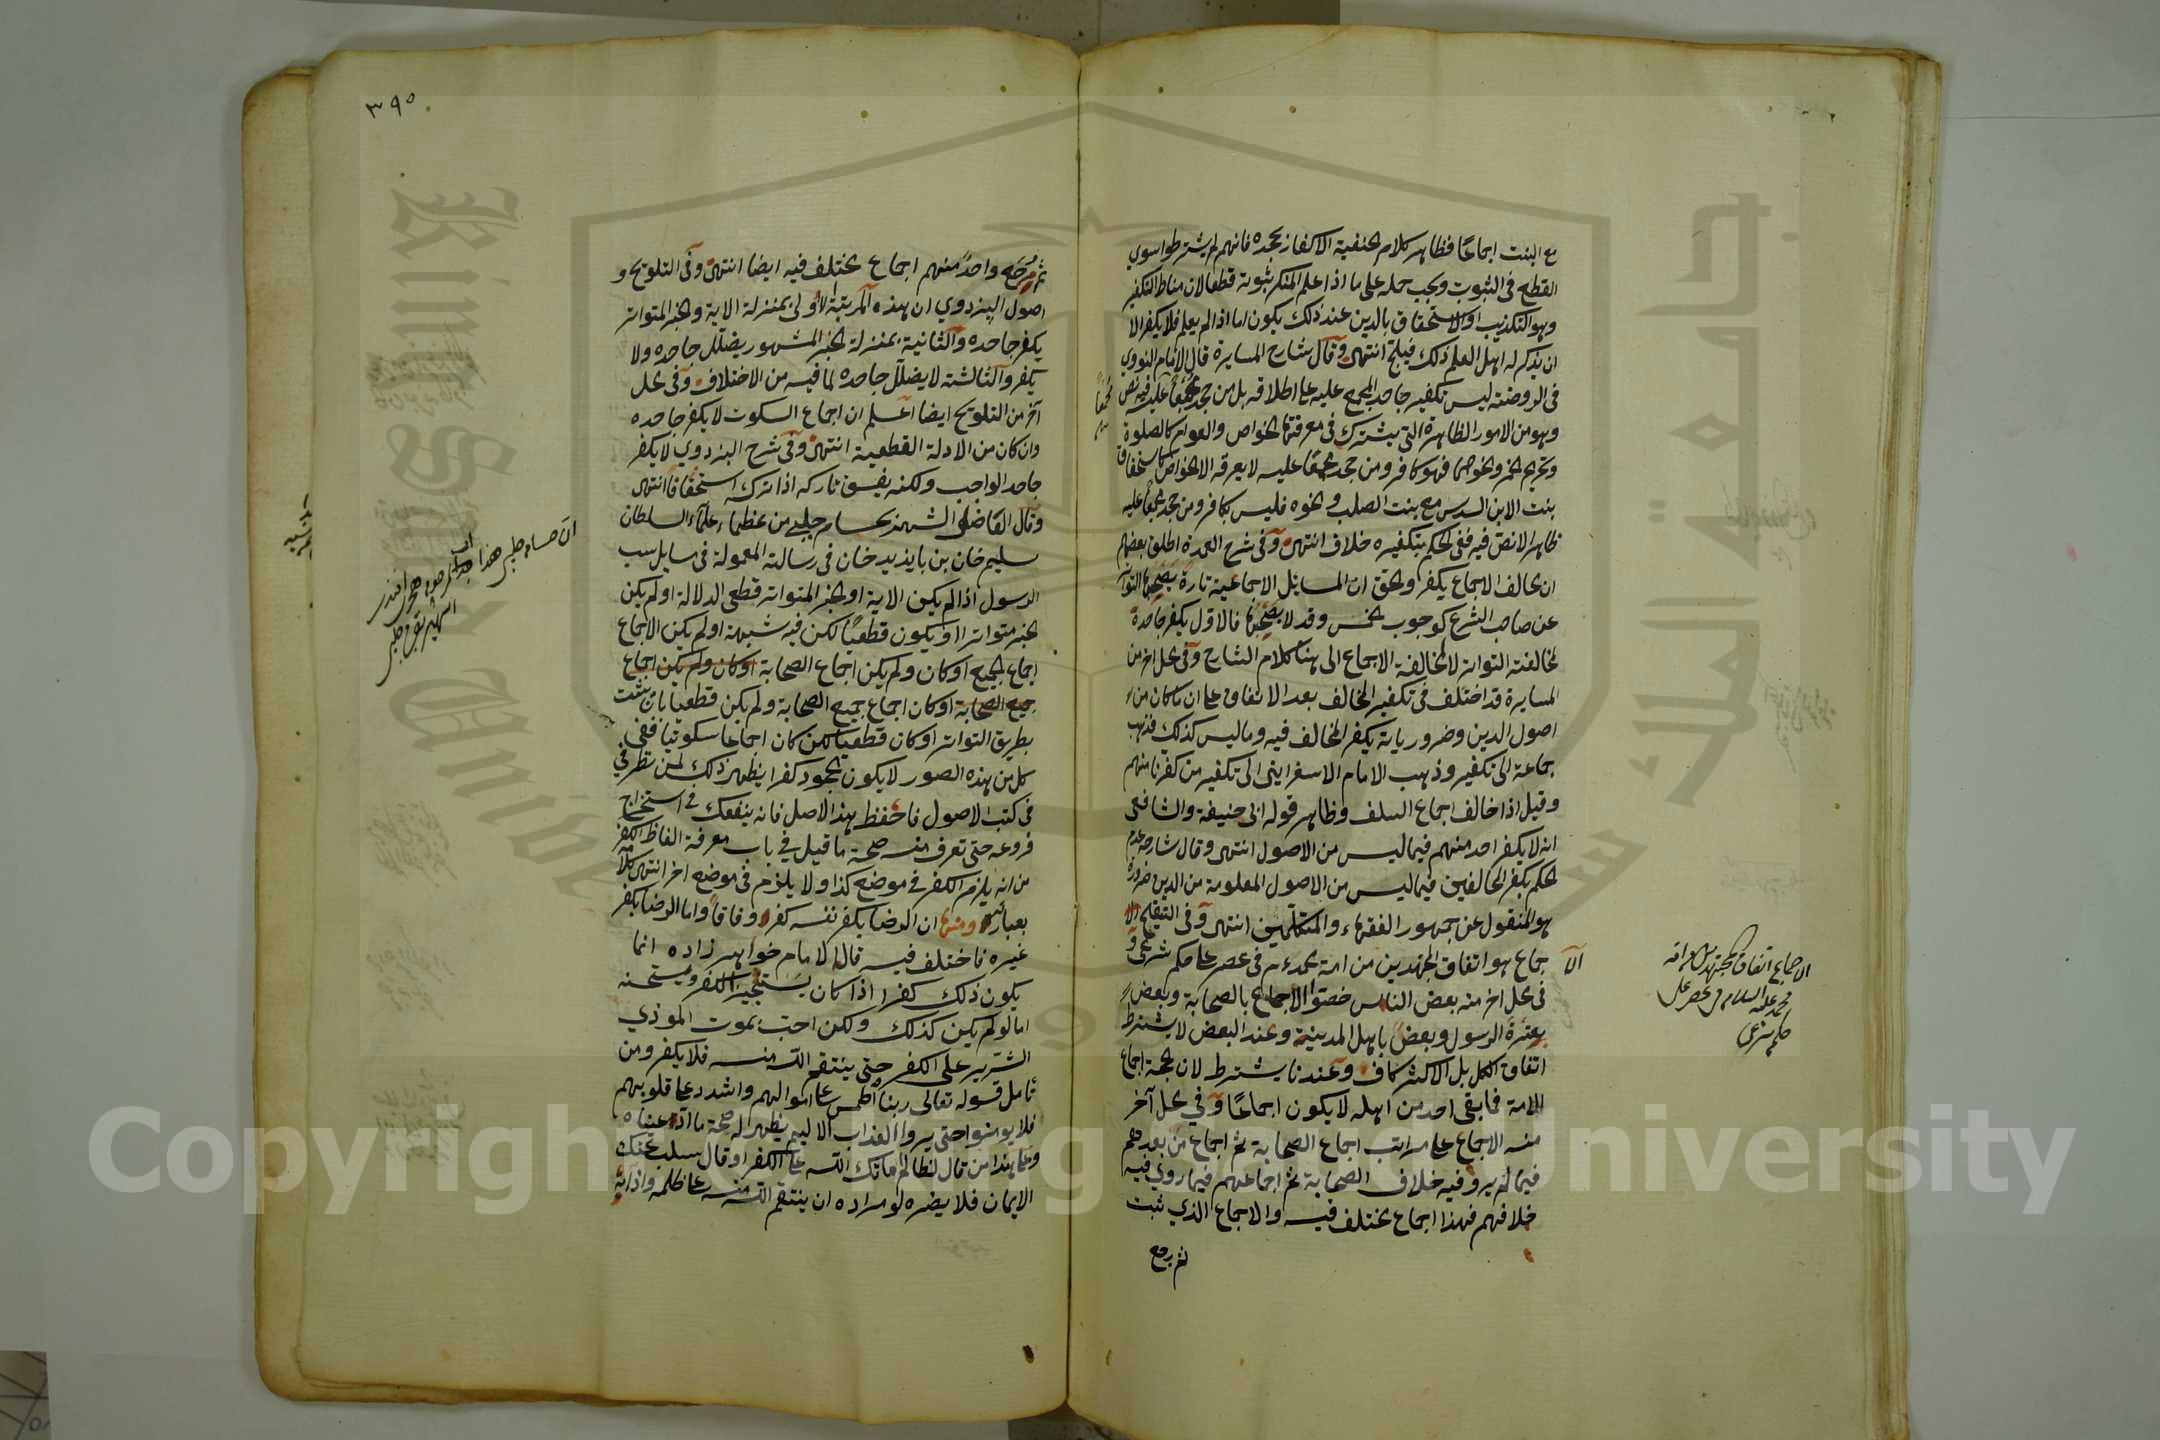 مع البنت اجماعًا فظاهر كلام الحنفية الاكفار بجحده فانهم لم يشترطوا سوي
القطع في الثبوت ويجب حمله على ما اذا علم المنكر بثبوته قطعا لان مناط التكفير
وهو التكذيب او الاستخفاق بالدين عند ذلك يكون اما اذا لم يعلم فلا يكفر الا
ان يذكر له اهل العلم ذلك فيلج انتهى وقال شارح المسايرة قال الامام النووي
في الروضة ليس تكفير جاحد المجمع عليه على اطلاقه بل من جحد مجمعًا عليه فيه نص
وهو من الامور الظاهرة التي يشترك في معرفتها الخواص والعوام كالصلوة
وتحريم الخمر ونحوهما فهو كافر ومن جحد مجمعًا عليه لا يعرفه الا الخواص كاستحقاق
بنت الابن السدس مع بنت الصلب ونحوه فليس بكافر ومن جحد مجمعًا عليه
ظاهرا لا نص فيه ففي الحكم بتكفيره خلاف انتهى وفي شرح العمدة اطلق بعضهم
ان مخالف الاجماع يكفر والحق ان المسائل الاجماعية تارة يصحبها التواتر
عن صاحب الشرع كوجوب الخمس وقد لا يصحبها فالاول يكفر جاحده
لمخالفته التواتر لا لمخالفة الاجماع الى هنا كلام الشارح وفي محل اخر من
المسايرة قد اختلف في تكفير المخالف بعد الاتفاق على ان ما كان من
اصول الدين وضرورياته يكفر المخالف فيه وما ليس كذلك فذهب
جماعة الى تكفير وذهب الامام الاسفرايني الى تكفير من كفرنا منهم
وقيل اذا خالف اجماع السلف وظاهر قوله ابى حنيفة والشافعي
انه لا يكفر احد منهم فيما ليس من الاصول انتهى وقال شارحه عدم
الحكم بكفر المخالفين فيما ليس من الاصول المعلومة من الدين ضرورة
هو المنقول عن جمهور الفقهاء والمتكلمين انتهى وفي التنقيح الا
جماع هو اتفاق المجتهدين من امة محمد عم في عصر على حكم شرعي و
في محل اخر منه بعض الناس خصوا الاجماع بالصحابة وبعض
بعترة الرسول وبعض باهل المدينة وعند البعض لا يشترط
اتفاق الكل بل الاكثر كاف وعندنا يشترط لان الحجة اجماع
الامة فما بقي احد من اهله لا يكون اجماعًا وفي محل آخر
منه الاجماع على مراتب اجماع الصحابة ثم اجماع من بعدهم
فيما لم يرو فيه خلاف الصحابة ثم اجماعهم فيما روي فيه
خلافهم فهذا اجماع مختلف فيه والاجماع الذي ثبت
ثم رجع
الا
الاجماع اتفاق المجتهدين من امة
محمد عليه السلام في عصر على
حكم شرعي
٣٩٥
ثم رجع واحد منهم اجماع مختلف فيه ايضا انتهى وفي التلويح و
اصول البزدوي ان هذه المرتبة الاولى بمنزلة الاية والخبر المتواتر
يكفر جاحده والثانية بمنزلة الخبر المشهور يضلل جاحده ولا
يكفر والثالثة لا يضلل جاحده لما فيه من الاختلاف وفي محل
آخر من التلويح ايضا اعلم ان اجماع السكوت لا يكفر جاحده
وان كان من الادلة القطعية انتهى وفي شرح البزدوي لا يكفر
جاحد الواجب ولكنه يفسق تاركه اذا تركه استخفافًا انتهى
وقال الفاضل الشهير بحسام جلبي من عظماء علماء السلطان
سليم خان بن بايزيد خان في رسالته المعمولة في مسايل سب
الرسول اذا لم يكن الاية او الخبر المتواتر قطعي الدلالة او لم يكن
الخبر متواترا او يكون قطعيًا لكن فيه شبهة او لم يكن الاجماع
اجماع الجميع او كان ولم يكن اجماع الصحابة او كان ولم يكن اجماع
جميع الصحابة او كان اجماع جميع الصحابة ولم يكن قطعيا بان لم يثبت
بطريق التواتر او كان قطعيا لكن كان اجماعا سكوتيا ففي
كل من هذه الصور لا يكون الجحود كفرا يظهر ذلك لمن نظر في
في كتب الاصول فاحفظ هذا الاصل فانه ينفعك في استخراج
فروعه حتى تعرف منه صحة ما قيل في باب معرفة الفاظ الكفر
من انه يلزم الكفر في موضع كذا ولا يلزم في موضع اخر انتهى كلامه
بعبارته ومنها ان الرضا بكفر نفسه كفر وفاقا واما الرضا بكفر
غيره فاختلف فيه قال الامام خواهر زاده انما
يكون ذلك كفرا اذا كان يستجيز الكفر ويستحسنه
اما لو لم يكن كذلك ولكن احب بموت الموذي
الشرير على الكفر حتى ينتقم الله منه فلا يكفر ومن
تامل قوله تعالى ربنا اطمس على اموالهم واشدد على قلوبهم
فلا يومنوا حتى يروا العذاب الاليم يظهر له صحة ما ادعيناه
وعلى هذا من قال لظالم اماتك الله على الكفر او قال سلب عنك
الايمان فلا يضره لو مراده ان ينتقم الله منه على ظلمه واذائه
ان حسام جلبي هذا
King Saud Unive
جامعة الملك
Copyright © King Saud University